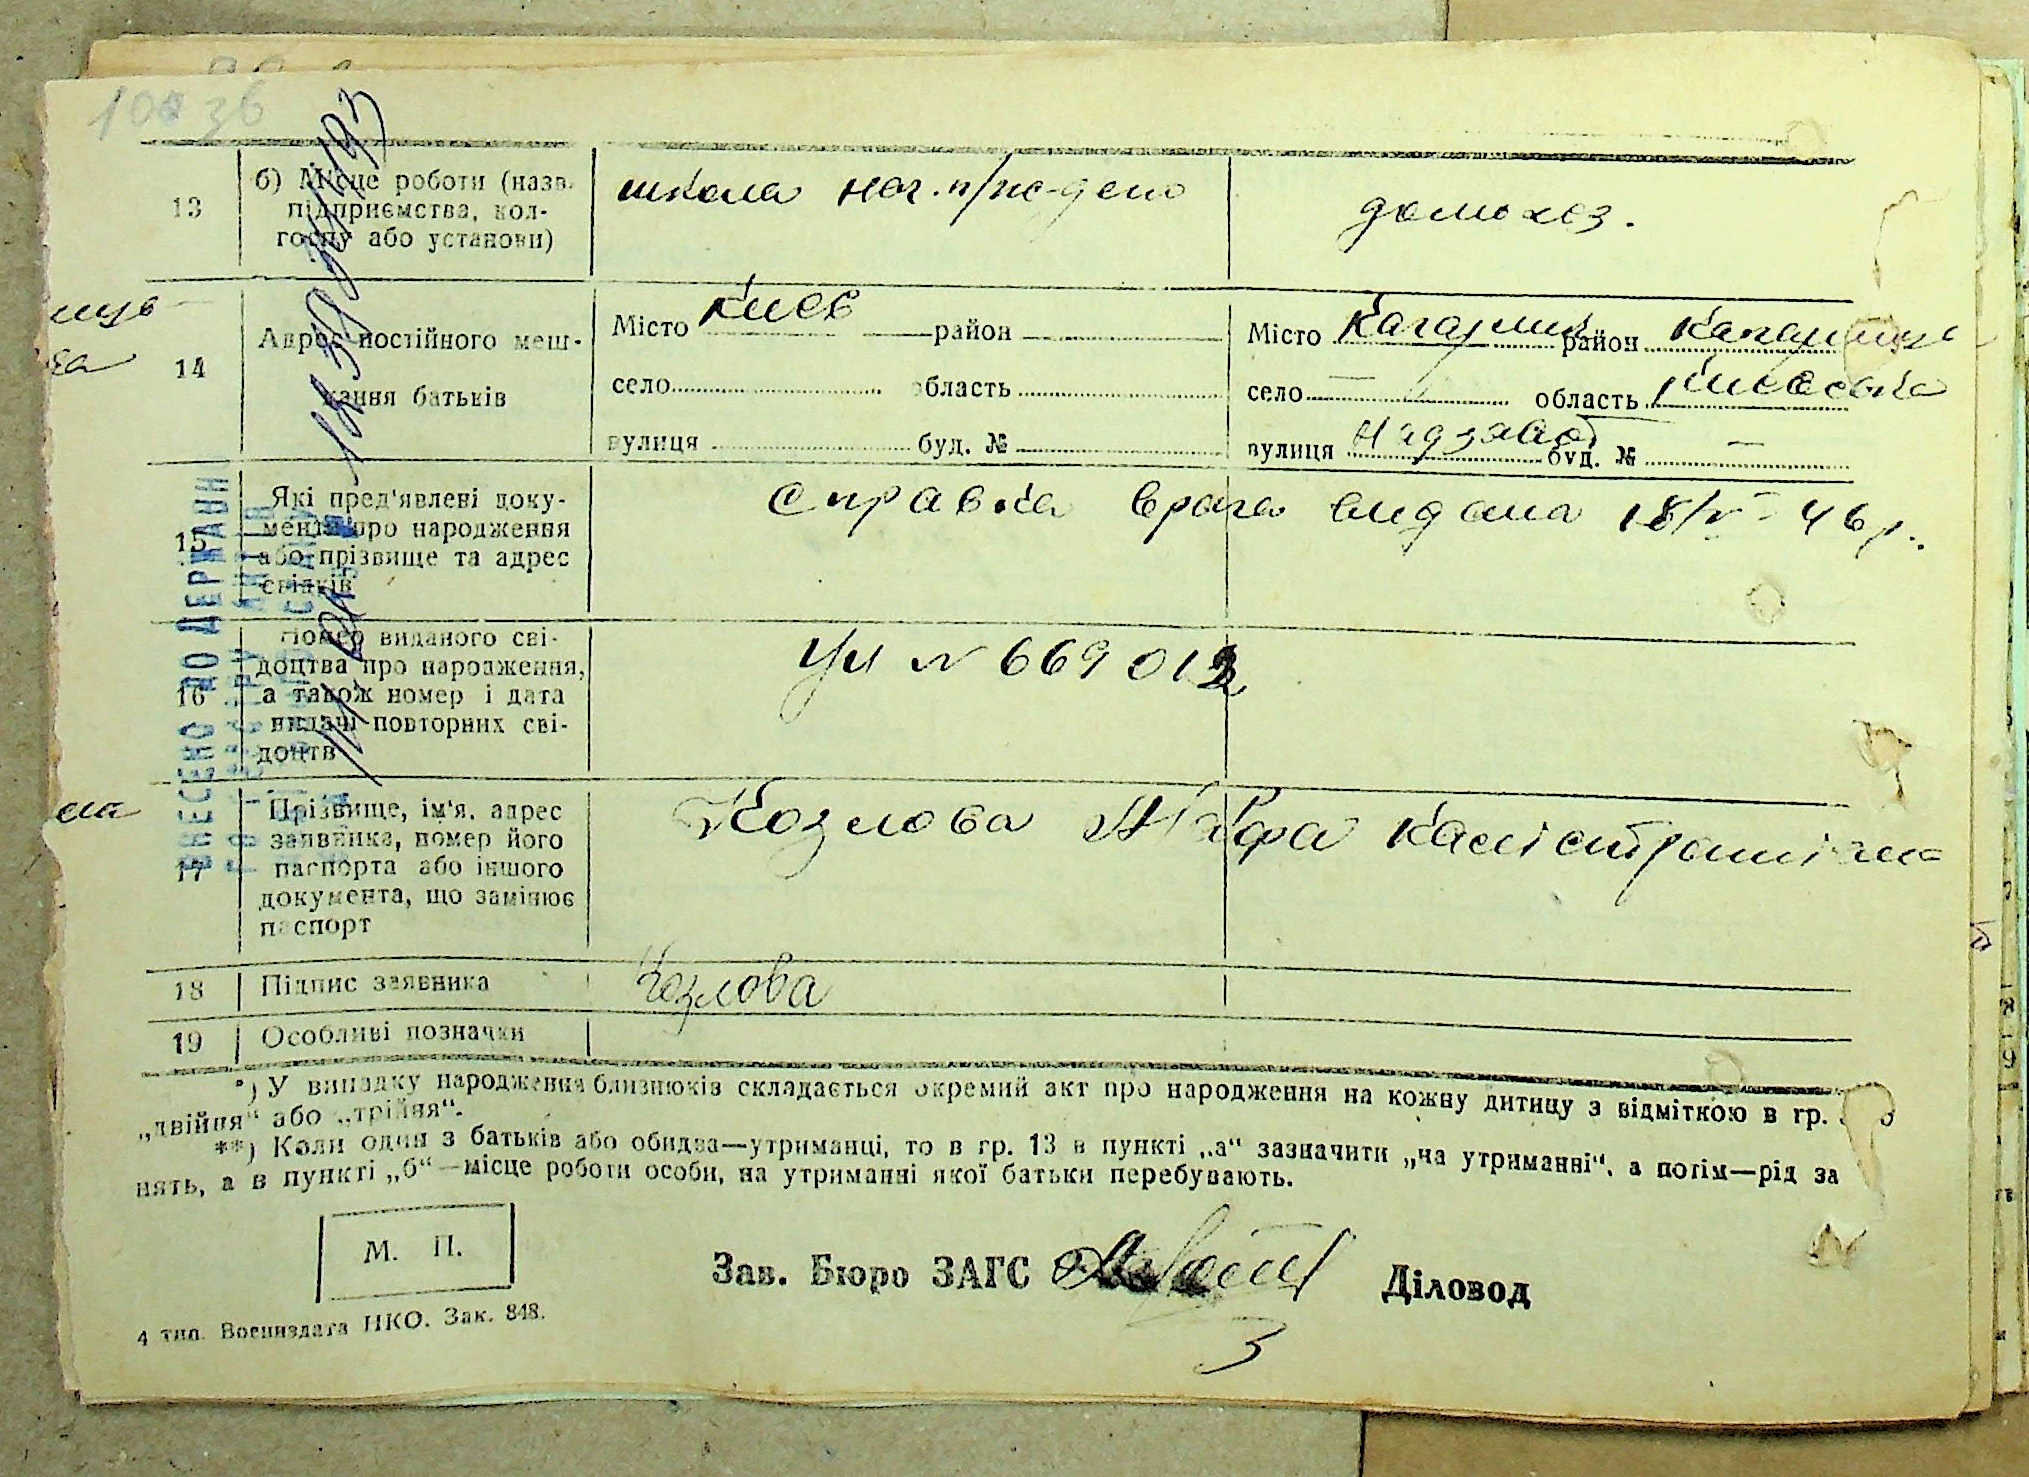 13
б) Місце роботи (назв.
підприємства, кол-
госпу або установи)
школа
домохоз.
14
Адрес постійного меш-
кання батьків
Місто Киев район
село область
вулиця буд. №
Місто Кагарлик район
село — область Киевська
вулиця буд. № —
15
Які пред'явлені доку-
менти про народження
або прізвище та адрес
свідків
справка врача видана 18/V - 46 р.
16
Номер виданого сві-
доцтва про народження,
а також номер і дата
видачі повторних сві-
доцтв
№ 669012
17
Прізвище, ім'я, адрес
заявника, номер його
паспорта або іншого
документа, що замінює
паспорт
Козлова Марфа
18
Підпис заявника
Козлова
19
Особливі позначки
*) У випадку народження близнюків складається окремий акт про народження на кожну дитицу з відміткою в гр.
„двійня" або „трійня".
**) Коли один з батьків або обидва—утриманці, то в гр. 13 в пункті „а" зазначити „на утриманні", а потім—рід за
нять, а в пункті „б"—місце роботи особи, на утриманні якої батьки перебувають.
М. П.
Зав. Бюро ЗАГС
Діловод
3
4 тип. Воениздата НКО. Зак. 848.
ВНЕСЕНО ДО ДЕРЖАВН